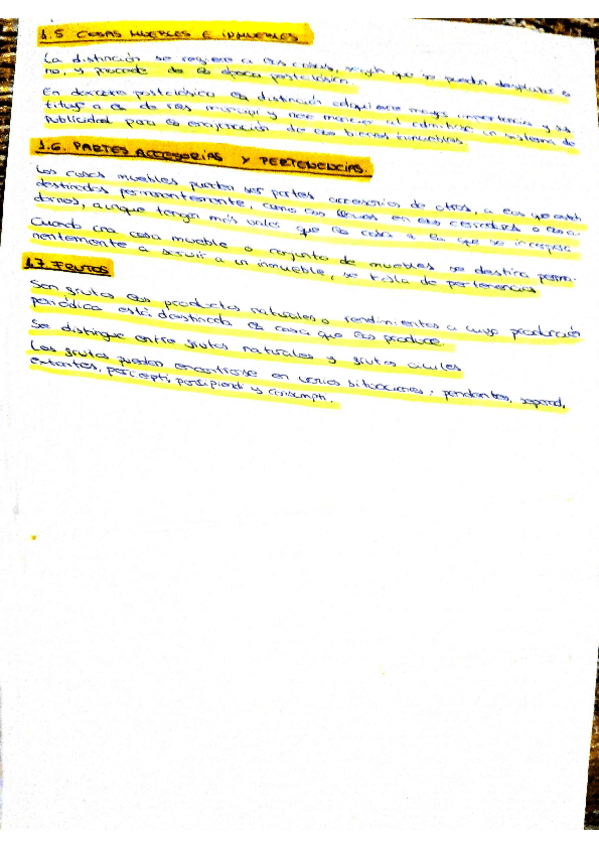 1.5 COSAS MUEBLES E INMUEBLES
La distinción se refiere a las cosas, según que se puedan desplazar o
no, y procede de la época postclásica.
En derecho postclásico la distinción adquiere mayor importancia y sus
tituye a la de res mancipi y nec mancipi al admitirse un sistema de
Publicidad para la enajenación de los bienes inmuebles.
1.6. PARTES ACCESORIAS Y PERTENENCIAS.
Las cosas muebles pueden ser partes accesorias de otras, a las que están
destinadas permanentemente, como las llaves en las cerraduras o los a-
dornos, aunque tengan más valor que la cosa a la que se incorpora
Cuando una cosa mueble o conjunto de muebles se destina perma-
nentemente a servir a un inmueble, se trata de pertenencias
1.7 FRUTOS
Son frutos los productos naturales o rendimientos a cuya producción
periódica está destinada la cosa que los produce.
Se distingue entre frutos naturales y frutos civiles
Los frutos pueden encontrarse en varias situaciones: pendentes, separati,
extantes, percepti, percipiendi y consumpti.